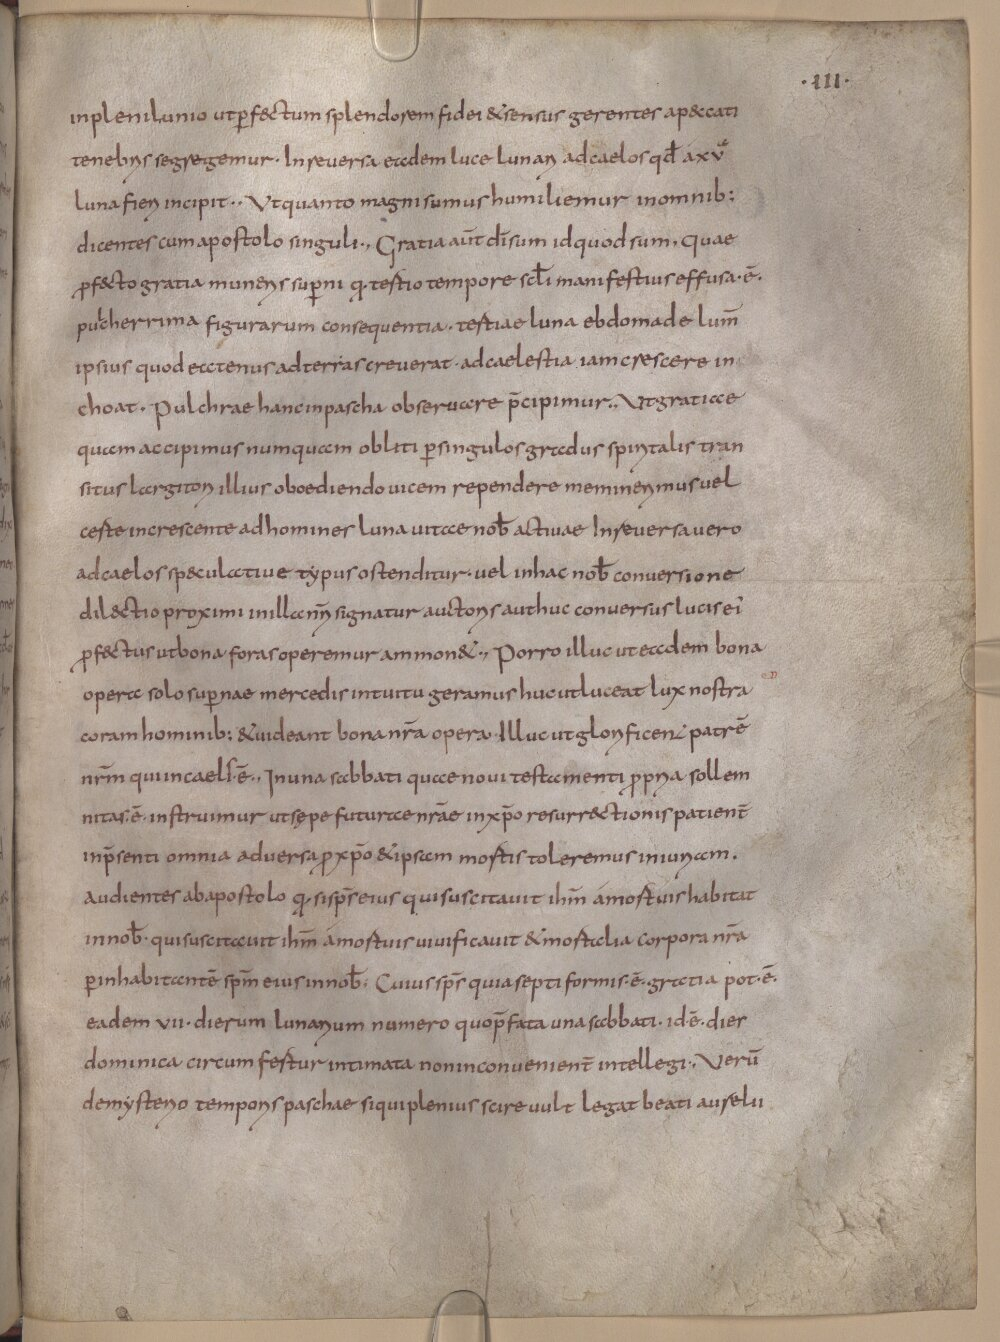 ·III·
inplenilunio utp̄fectum splendorem fidei &sensus gerentes apeccati
tenebris segregemur. Inreversa eadem luce lunari adcaelos qđ axvͣ
luna fieri incipit.. Vtquanto magni sumus humiliemur inomnib:
dicentes cum apostolo singuli., Gratia aūt dī sum idquod sum. Quae
ꝓfecto gratia muneris sup̄ni q. tertio tempore scl̄i manifestius effusa.ē.
pulcherrima figurarum consequentia. tertiae luna ebdomade lum̄
ipsius quod eatenus adterras creverat. adcaelestia iam crescere in
choat. Pulchrae hanc inpascha observare p̄cipimur.. Vtgratiae
quam accipimus numquam obliti p̄singulos gradus spiritalis tran
situs largitori illius oboediendo vicem rependere meminerimus vel
certe increscente adhomines luna vitae nob̄ activae Inreversa vero
adcaelos speculative typus ostenditur. vel inhac nob̄ conversione
dilectio proximi inilla nr̄i signatur auctoris aut huc conversus lucis ei
ꝓfectus utbona foras operemur ammon&., Porro illuc ut eadem bona
opera solo sup̄nae mercedis intuitu geramus huc utluceat lux nostra
coram hominib: &uideant bona nr̄a opera. Illuc utglorificent patrē
nr̄m qui incaelī.ē.. In una sabbati quae novi testamenti ꝓpria sollem
nitas.ē. instruimur utsępe futurae nr̄ae inxp̄o resurrectionis patient̄
inp̄senti omnia adversa ꝓxp̄o &ipsam mortis toleremus iniuriam.
audientes abapostolo q. sisp̄s eius qui suscitavit ih̄m amortuis habitat
innob̄. qui suscitavit ih̄m amortuis vivificavit &mortalia corpora nr̄a
p̄inhabitantē sp̄m eius innob̄. Cuius sp̄s quia septiformis.ē. gratia pot.ē.
eadem vii. dierum lunarium numero quop̄fata una sabbati. id.ē. dies
dominica circumfertur intimata noninconvenient̄ intellegi., Verū
demysterio temporis paschae siquiplenius scire vult legat beati aurelii